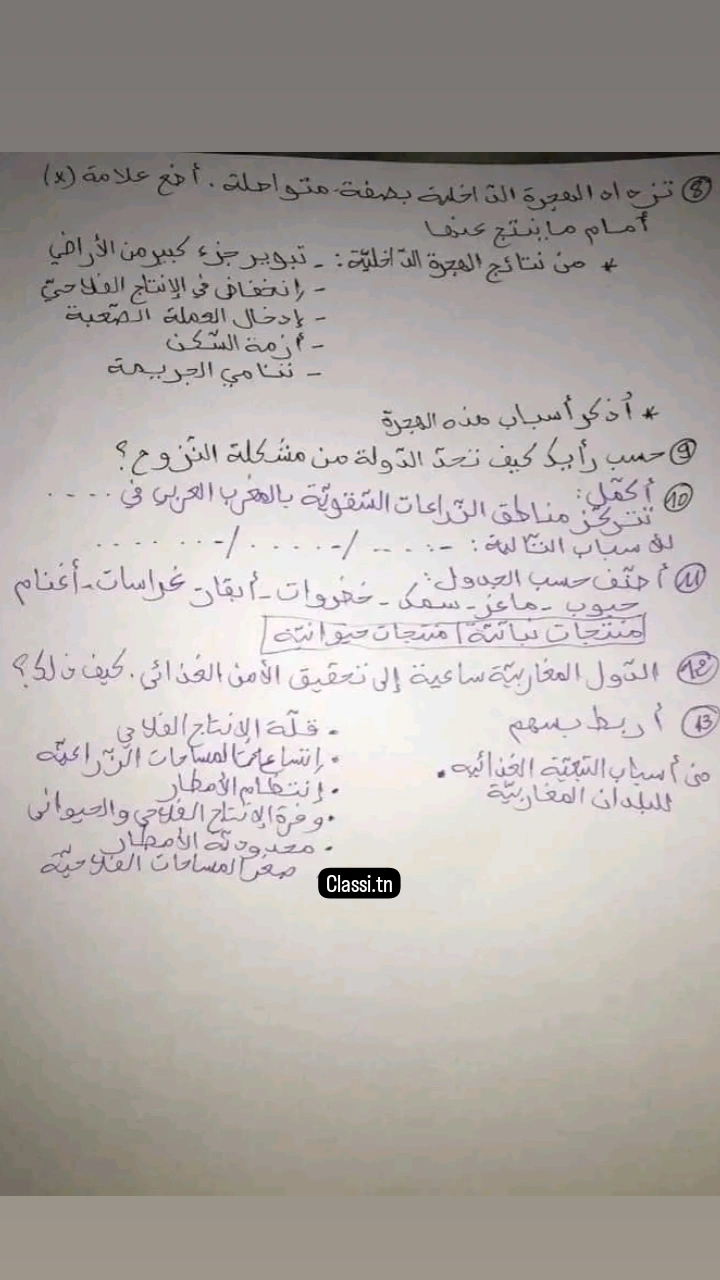 ⑧ تزداد الهجرة الداخلية بصفة متواصلة. أضع علامة (x)
أمام ما ينتج عنها
* من نتائج الهجرة الداخليّة: - تبوير جزء كبير من الأراضي
- إنخفاض في الإنتاج الفلاحيّ
- إدخال العملة الصّعبة
- أزمة السّكن
- تنامي الجريمة
* أذكر أسباب هذه الهجرة
⑨ حسب رأيك كيف تحدّ الدّولة من مشكلة النّزوح؟
⑩ أكمّل:
تتركّز مناطق الزّراعات السّقويّة بالمغرب العربي في ....
للأسباب التّالية: ...... / ...... / ......
⑪ أصنّف حسب الجدول:
حبوب - ماعز - سمك - خضروات - أبقار - غراسات - أغنام
منتجات نباتيّة | منتجات حيوانيّة
⑫ الدّول المغاربيّة ساعية إلى تحقيق الأمن الغذائي. كيف ذلك؟
⑬ أربط بسهم
من أسباب التبعيّة الغذائيّة •
للبلدان المغاربيّة
• قلّة الإنتاج الفلاحي
• إتّساع المساحات الزّراعيّة
• إنتظام الأمطار
• وفرة الإنتاج الفلاحي والحيواني
• محدوديّة الأمطار
صغر المساحات الفلاحيّة
Classi.tn